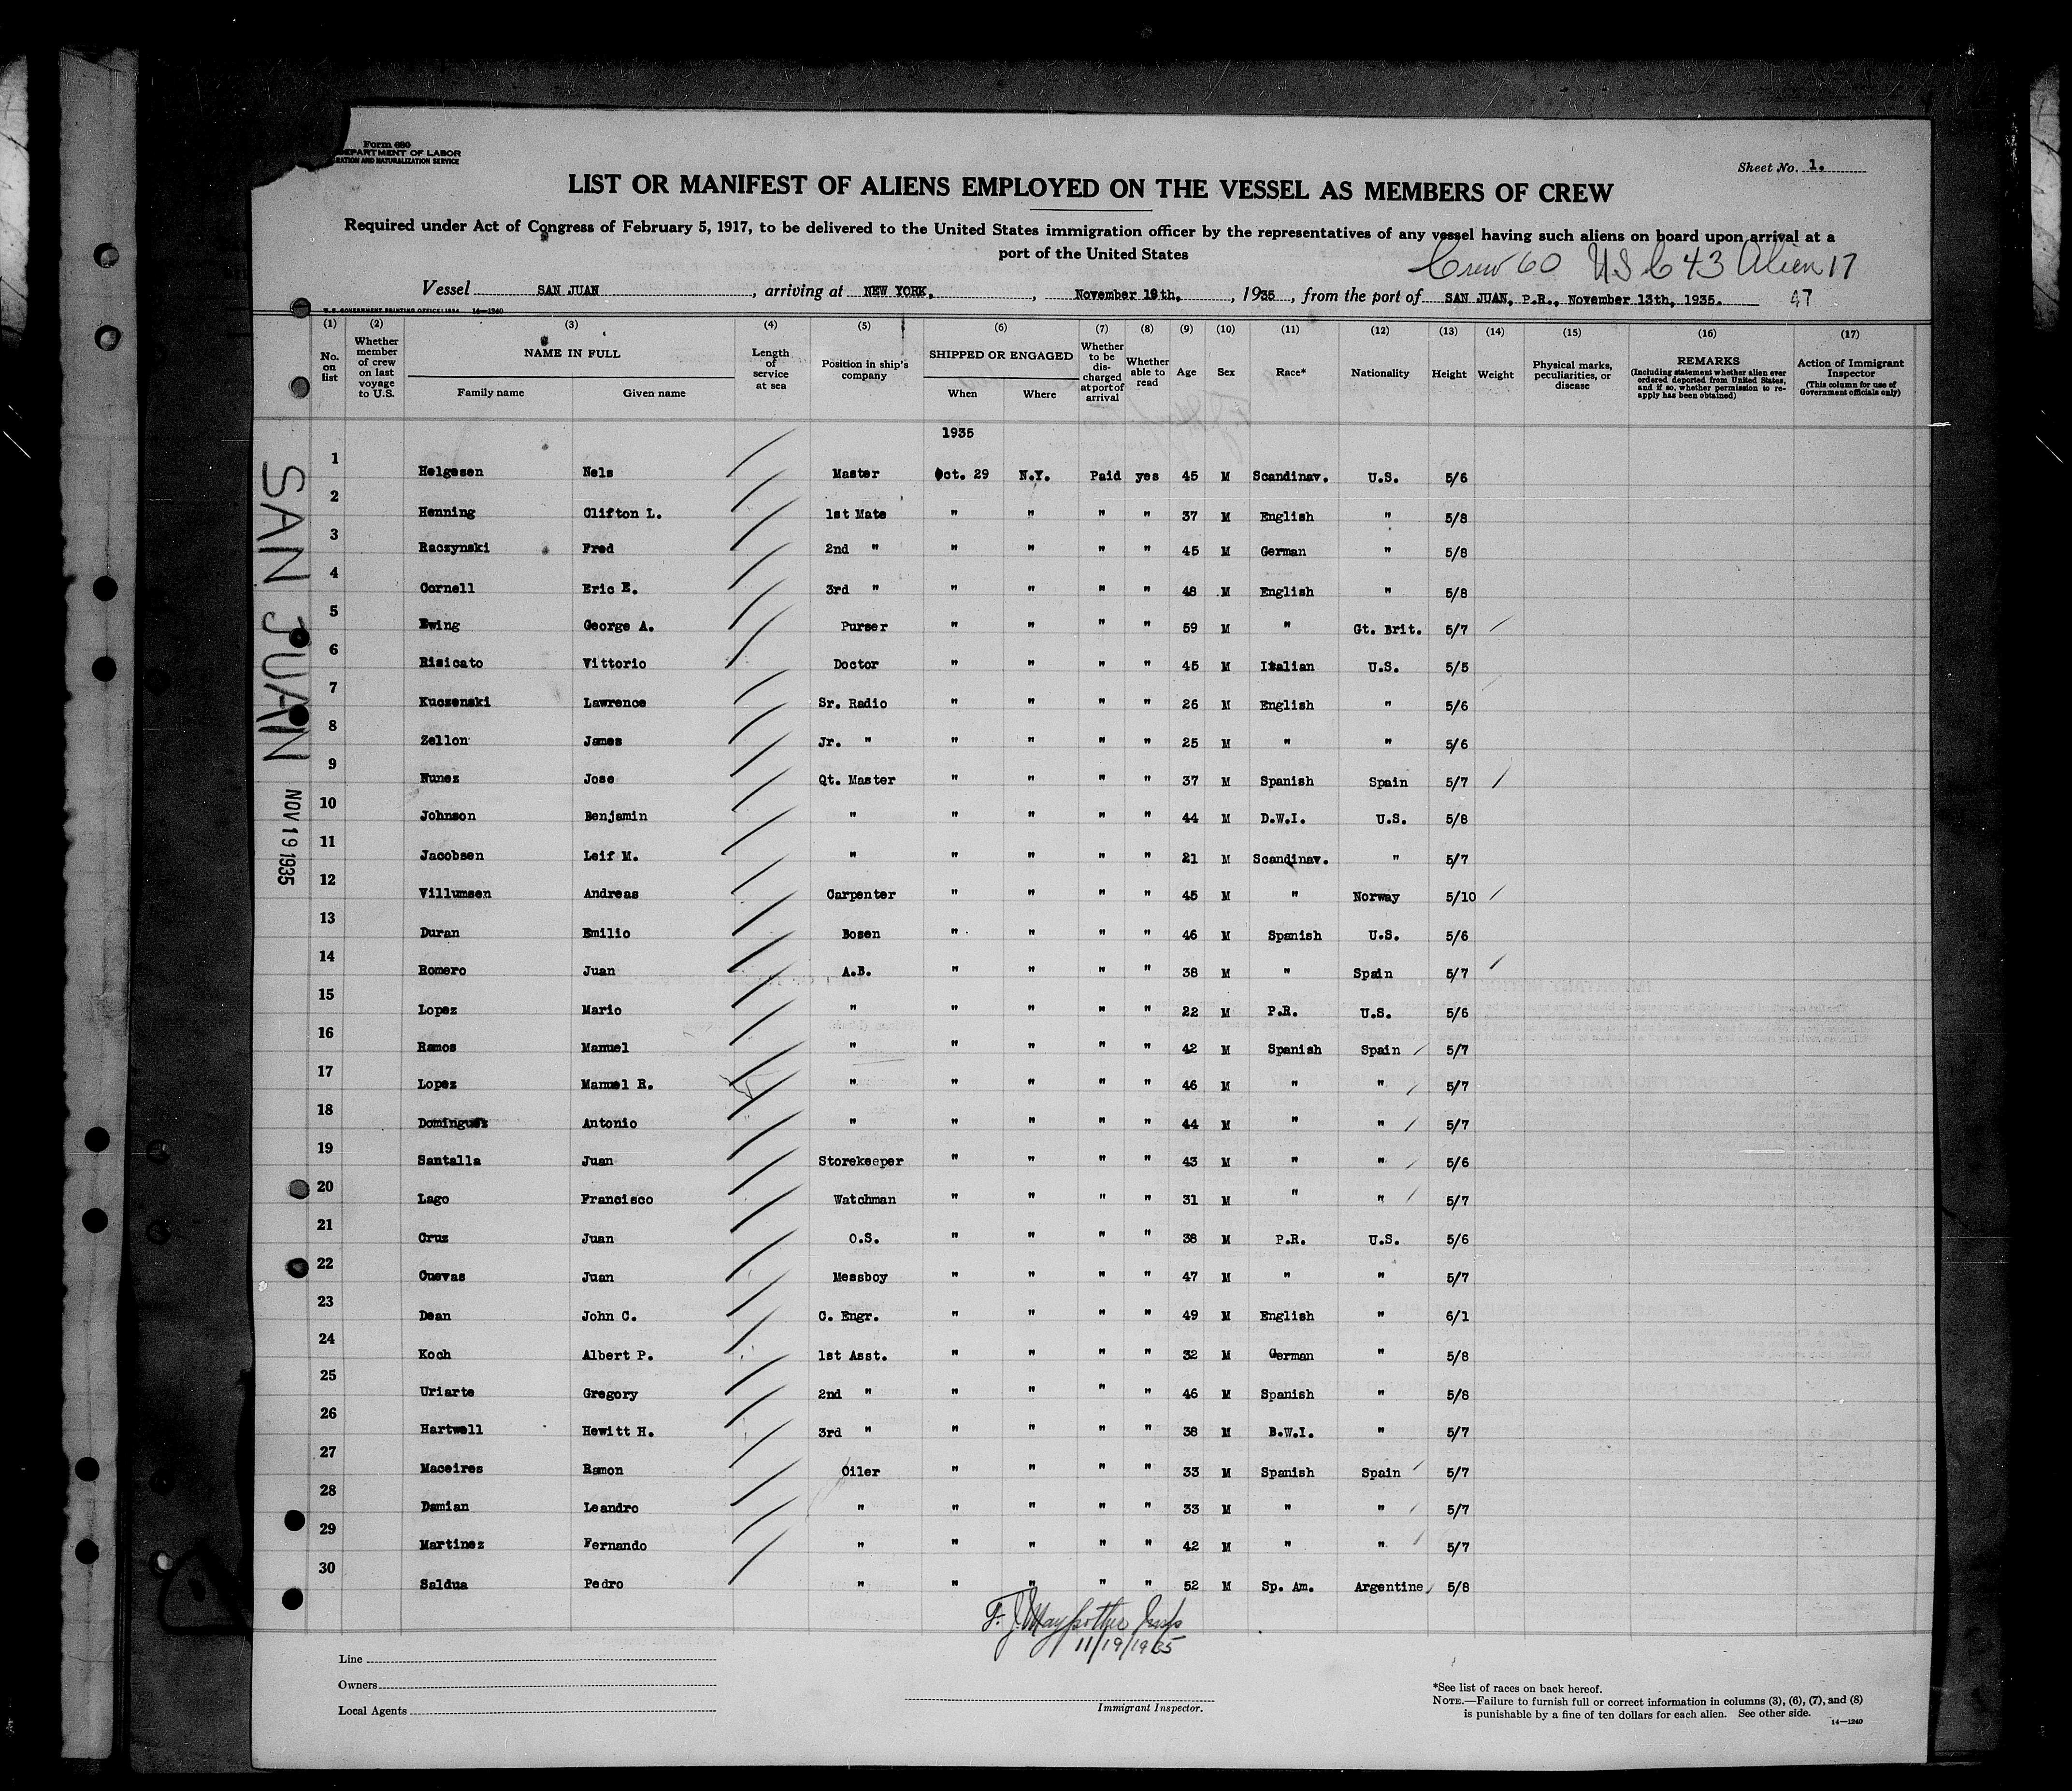 Form 680
DEPARTMENT OF LABOR
RATION AND NATURALIZATION SERVICE
Sheet No. 1.
LIST OR MANIFEST OF ALIENS EMPLOYED ON THE VESSEL AS MEMBERS OF CREW
Required under Act of Congress of February 5, 1917, to be delivered to the United States immigration officer by the representatives of any vessel having such aliens on board upon arrival at a
port of the United States
Crew 60 US C 43 Alien 17
Vessel SAN JUAN, arriving at NEW YORK, , November 19th, , 1935, from the port of SAN JUAN, P.R., November 13th, 1935. 47
U.S. GOVERNMENT PRINTING OFFICE: 1934 14—1240
(1) (2) (3) (4) (5) (6) (7) (8) (9) (10) (11) (12) (13) (14) (15) (16) (17)
No. on list
Whether member of crew on last voyage to U.S.
NAME IN FULL
Family name Given name
Length of service at sea
Position in ship's company
SHIPPED OR ENGAGED
When Where
Whether to be discharged at port of arrival
Whether able to read
Age Sex Race* Nationality Height Weight
Physical marks, peculiarities, or disease
REMARKS
(Including statement whether alien ever ordered deported from United States, and if so, whether permission to reapply has been obtained)
Action of Immigrant Inspector
(This column for use of Government officials only)
1935
1 Helgesen Nels Master Oct. 29 N.Y. Paid yes 45 M Scandinav. U.S. 5/6
2 Henning Clifton L. 1st Mate " " " " 37 M English " 5/8
3 Raczynski Fred 2nd " " " " " 45 M German " 5/8
4 Cornell Eric E. 3rd " " " " " 48 M English " 5/8
5 Ewing George A. Purser " " " " 59 M " Gt. Brit. 5/7
6 Risicato Vittorio Doctor " " " " 45 M Italian U.S. 5/5
7 Kuczenski Lawrence Sr. Radio " " " " 26 M English " 5/6
8 Zellon James Jr. " " " " " 25 M " " 5/6
9 Nunez Jose Qt. Master " " " " 37 M Spanish Spain 5/7
10 Johnson Benjamin " " " " " 44 M D.W.I. U.S. 5/8
11 Jacobsen Leif M. " " " " " 21 M Scandinav. " 5/7
12 Villumsen Andreas Carpenter " " " " 45 M " Norway 5/10
13 Duran Emilio Bosen " " " " 46 M Spanish U.S. 5/6
14 Romero Juan A.B. " " " " 38 M " Spain 5/7
15 Lopez Mario " " " " " 22 M P.R. U.S. 5/6
16 Ramos Manuel " " " " " 42 M Spanish Spain 5/7
17 Lopez Manuel R. " " " " " 46 M " " 5/7
18 Dominguez Antonio " " " " " 44 M " " 5/7
19 Santalla Juan Storekeeper " " " " 43 M " " 5/6
20 Lago Francisco Watchman " " " " 31 M " " 5/7
21 Cruz Juan O.S. " " " " 38 M P.R. U.S. 5/6
22 Cuevas Juan Messboy " " " " 47 M " " 5/7
23 Dean John C. C. Engr. " " " " 49 M English " 6/1
24 Koch Albert P. 1st Asst. " " " " 32 M German " 5/8
25 Uriarte Gregory 2nd " " " " " 46 M Spanish " 5/8
26 Hartwell Hewitt H. 3rd " " " " " 38 M B.W.I. " 5/7
27 Maceires Ramon Oiler " " " " 33 M Spanish Spain 5/7
28 Damian Leandro " " " " " 33 M " " 5/7
29 Martinez Fernando " " " " " 42 M " " 5/7
30 Saldua Pedro " " " " " 52 M Sp. Am. Argentine 5/8
SAN JUAN
NOV 19 1935
F. J. Insp
11/19/1935
Line
Owners
Local Agents
Immigrant Inspector.
*See list of races on back hereof.
NOTE.—Failure to furnish full or correct information in columns (3), (6), (7), and (8)
is punishable by a fine of ten dollars for each alien. See other side.
14—1240